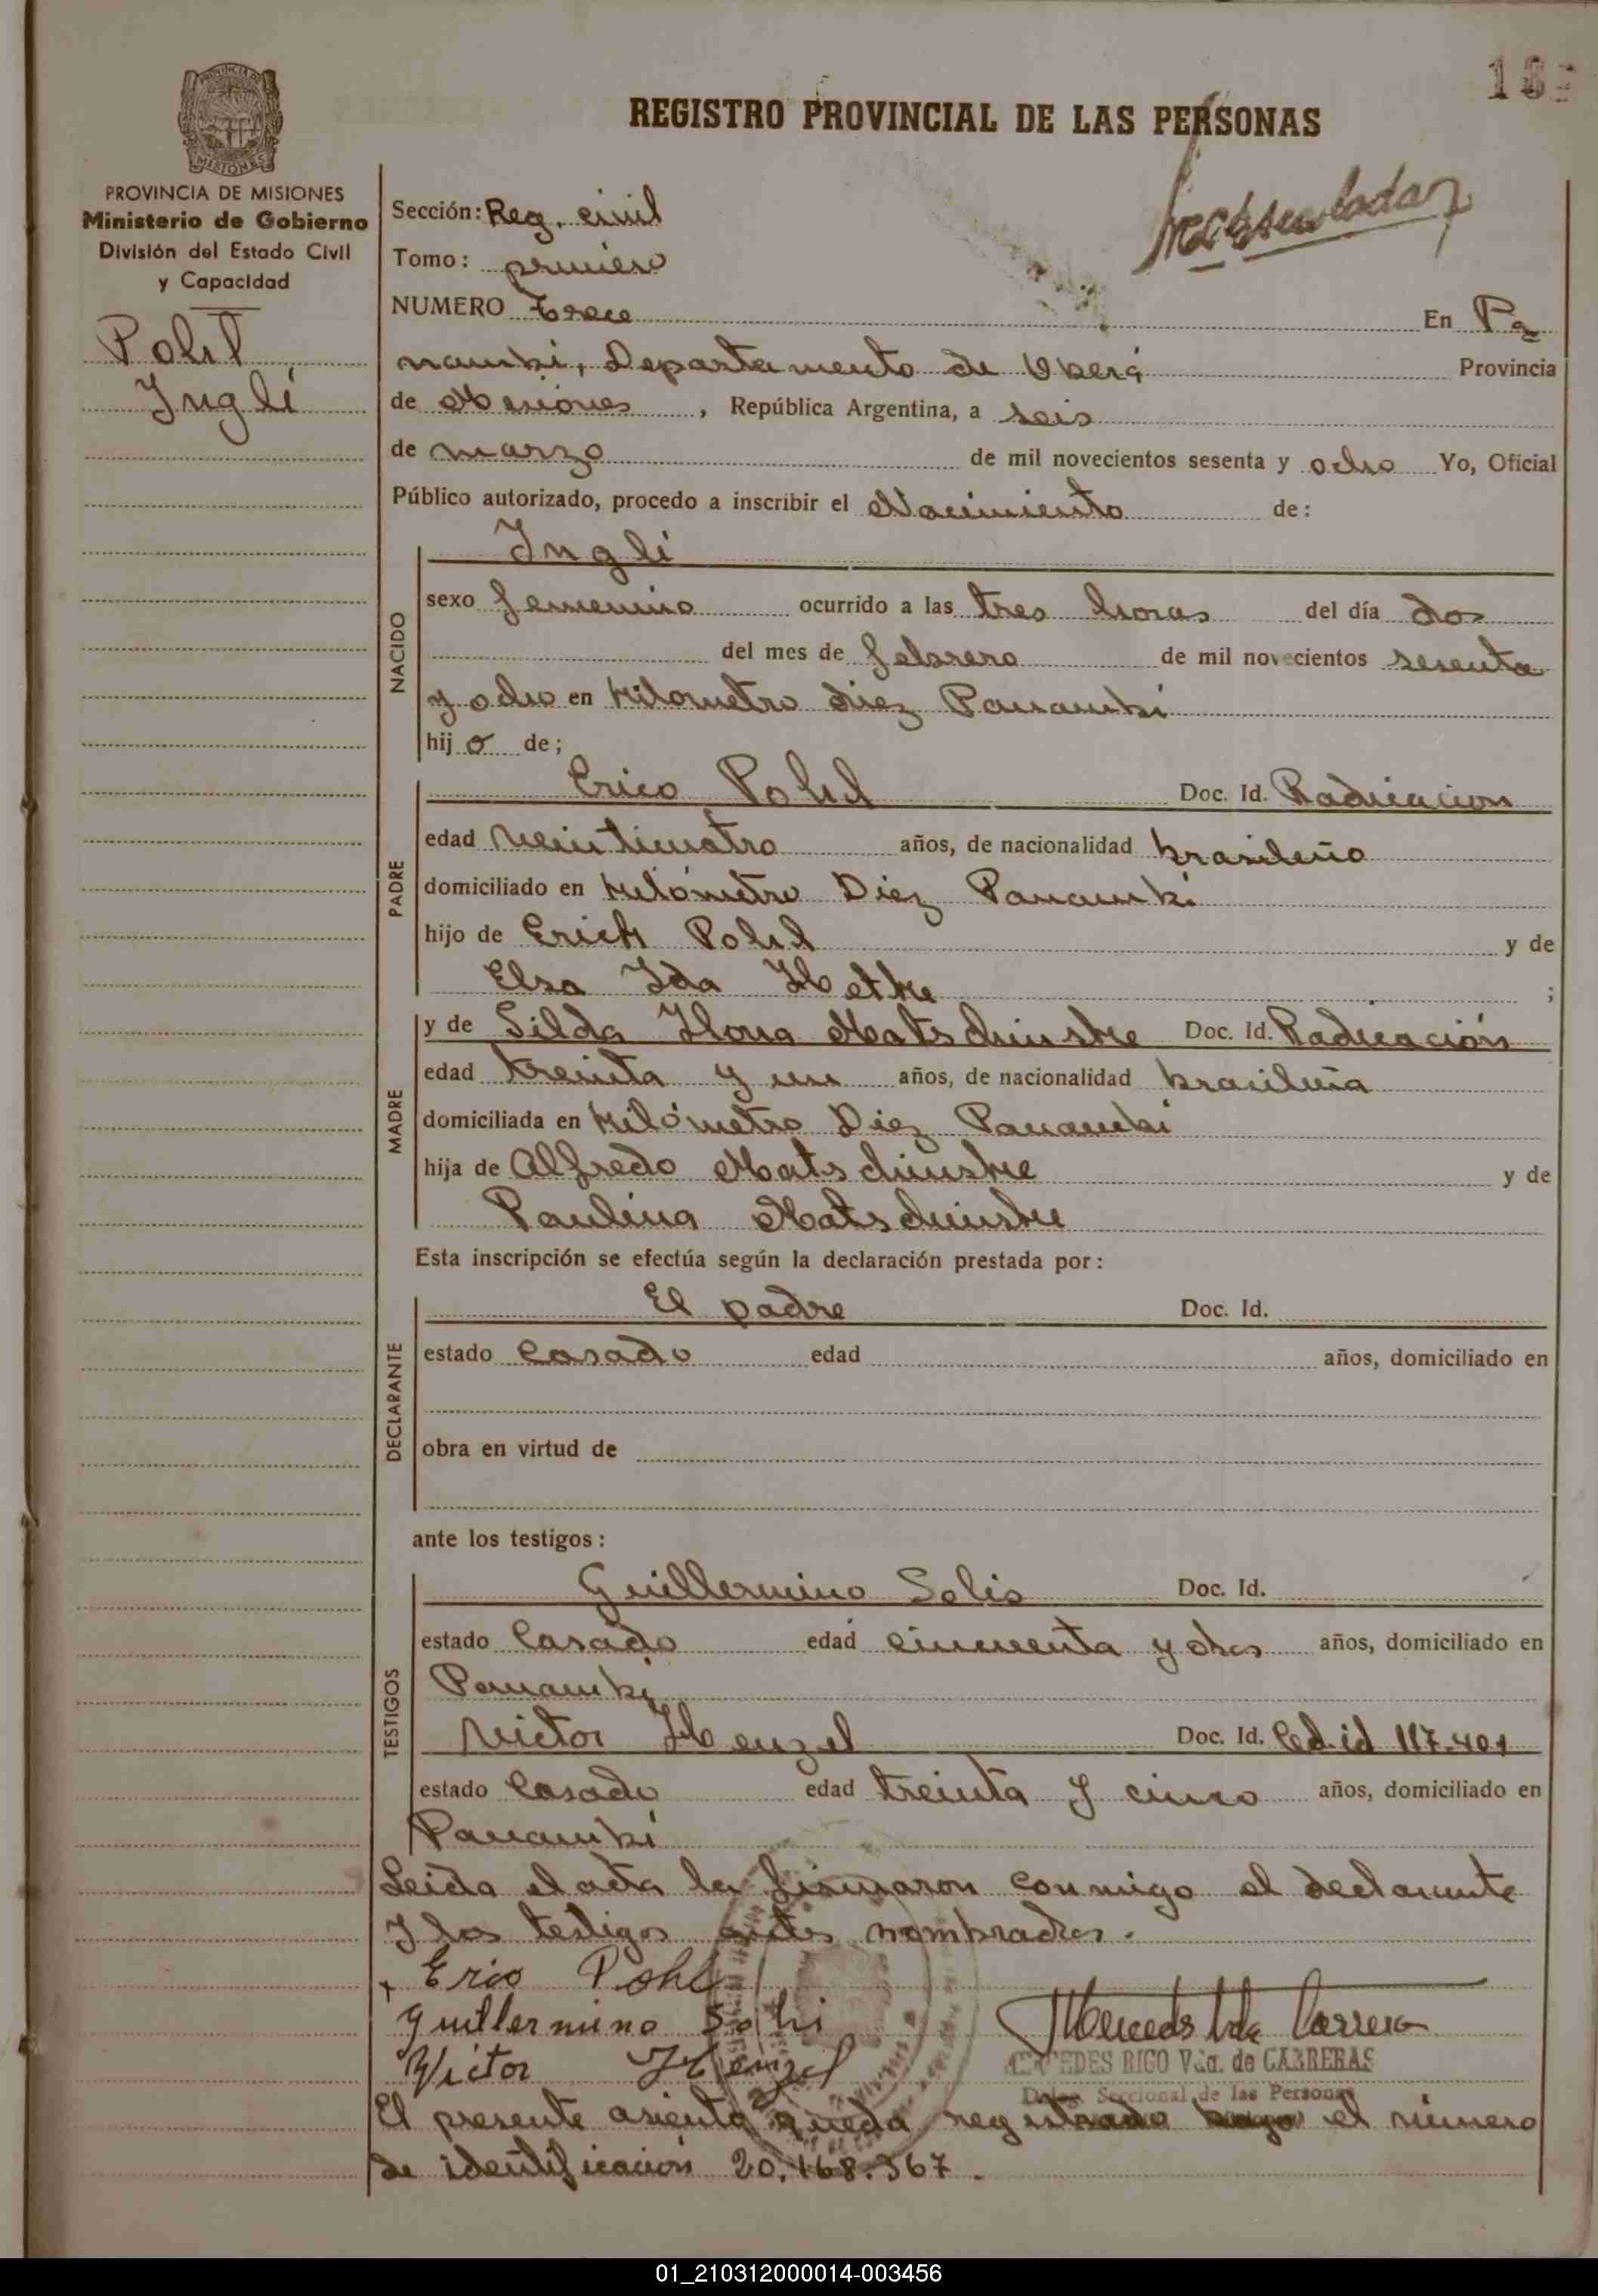 REGISTRO PROVINCIAL DE LAS PERSONAS
PROVINCIA DE MISIONES
Ministerio de Gobierno
División del Estado Civil
y Capacidad
Pohl
Ingli
Sección: Reg. civil
Tomo: primero
NUMERO Trece En Pa
nambi, Departamento de Oberá Provincia
de Misiones, República Argentina, a seis
de marzo de mil novecientos sesenta y ocho Yo, Oficial
Público autorizado, procedo a inscribir el Nacimiento de:
NACIDO
Ingli
sexo femenino ocurrido a las tres horas del día dos
del mes de febrero de mil novecientos sesenta
y ocho en Kilometro diez Panambi
hij o de;
PADRE
Erico Pohl Doc. Id. Radicacion
edad veinticuatro años, de nacionalidad brasileño
domiciliado en Kilómetro Diez Panambi
hijo de Erich Pohl y de
Elsa Ida ;
MADRE
y de Silda Doc. Id. Radicación
edad treinta y un años, de nacionalidad brasileña
domiciliada en Kilómetro Diez Panambi
hija de Alfredo y de
Paulina
Esta inscripción se efectúa según la declaración prestada por:
DECLARANTE
El padre Doc. Id.
estado Casado edad años, domiciliado en
obra en virtud de
ante los testigos:
TESTIGOS
Guillermino Doc. Id.
estado Casado edad cincuenta y dos años, domiciliado en
Panambi
Victor Henzel Doc. Id. Ced. id 117.401
estado Casado edad treinta y cinco años, domiciliado en
Panambi
Leida el acta la firmaron conmigo el declarante
y los testigos antes nombrados.
Erico Pohl
Guillermino
Victor Henzel
MERCEDES RIGO Vda. de CARRERAS
Deleg. Seccional de las Personas
El presente asiento queda registrado bajo el número
de identificación 20.168.367.
01_210312000014-003456